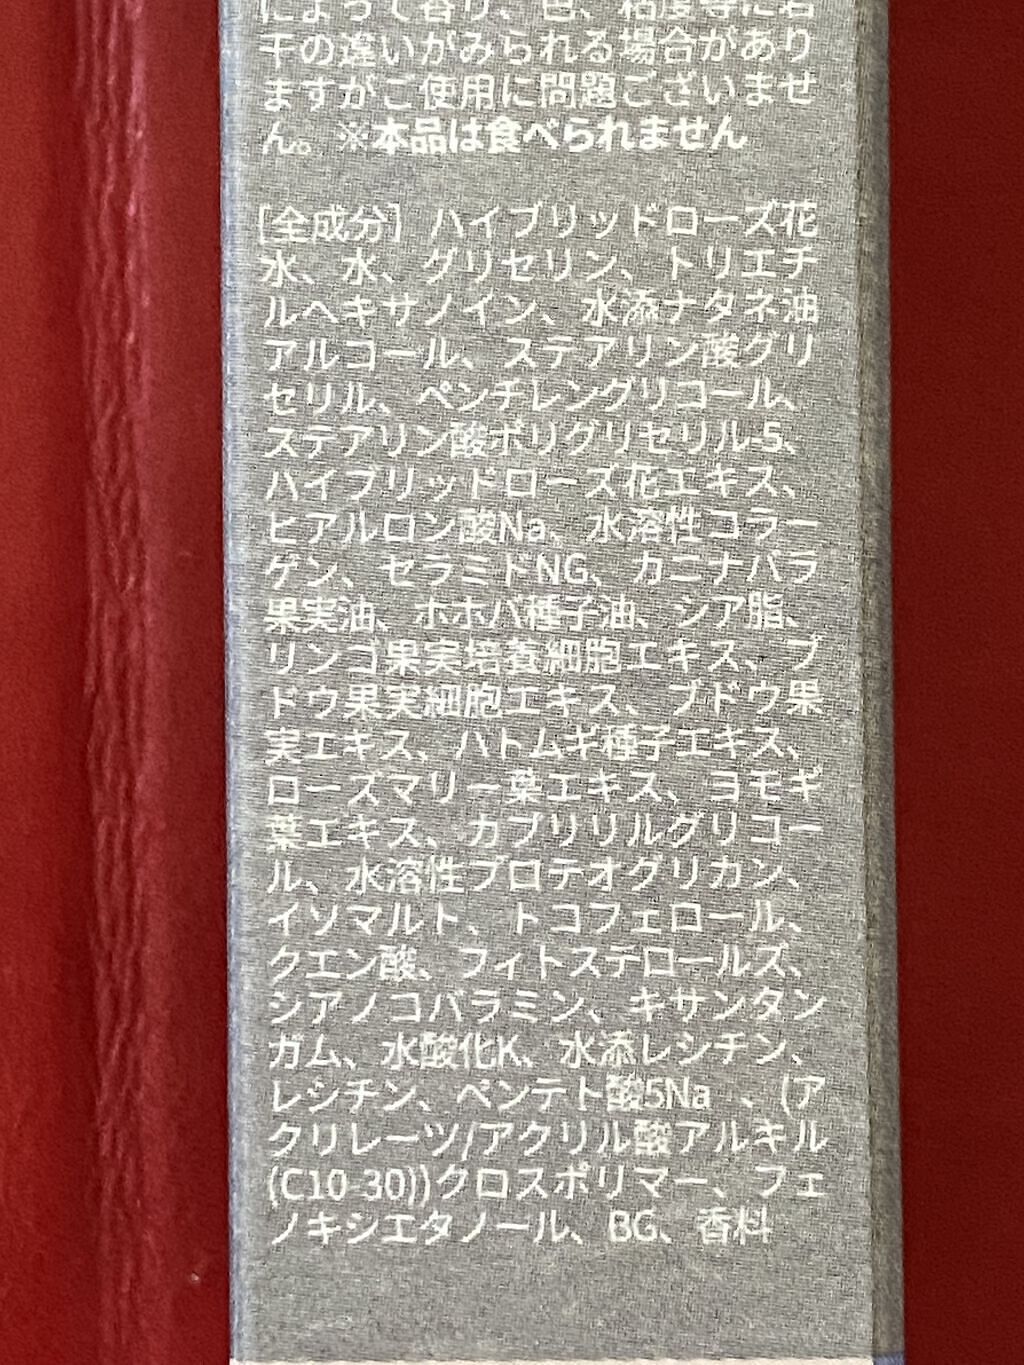 によって香り、色、粘度等に若
干の違いがみられる場合があり
ますがご使用に問題ございませ
ん。※本品は食べられません
[全成分] ハイブリッドローズ花
水、水、グリセリン、トリエチ
ルヘキサノイン、水添ナタネ油
アルコール、ステアリン酸グリ
セリル、ペンチレングリコール、
ステアリン酸ポリグリセリル-5、
ハイブリッドローズ花エキス、
ヒアルロン酸Na、水溶性コラー
ゲン、セラミドNG、カニナバラ
果実油、ホホバ種子油、シア脂、
リンゴ果実培養細胞エキス、ブ
ドウ果実細胞エキス、ブドウ果
実エキス、ハトムギ種子エキス、
ローズマリー葉エキス、ヨモギ
葉エキス、カプリリルグリコー
ル、水溶性プロテオグリカン、
イソマルト、トコフェロール、
クエン酸、フィトステロールズ、
シアノコバラミン、キサンタン
ガム、水酸化K、水添レシチン、
レシチン、ペンテト酸5Na 、(ア
クリレーツ/アクリル酸アルキル
(C10-30))クロスポリマー、フェ
ノキシエタノール、BG、香料